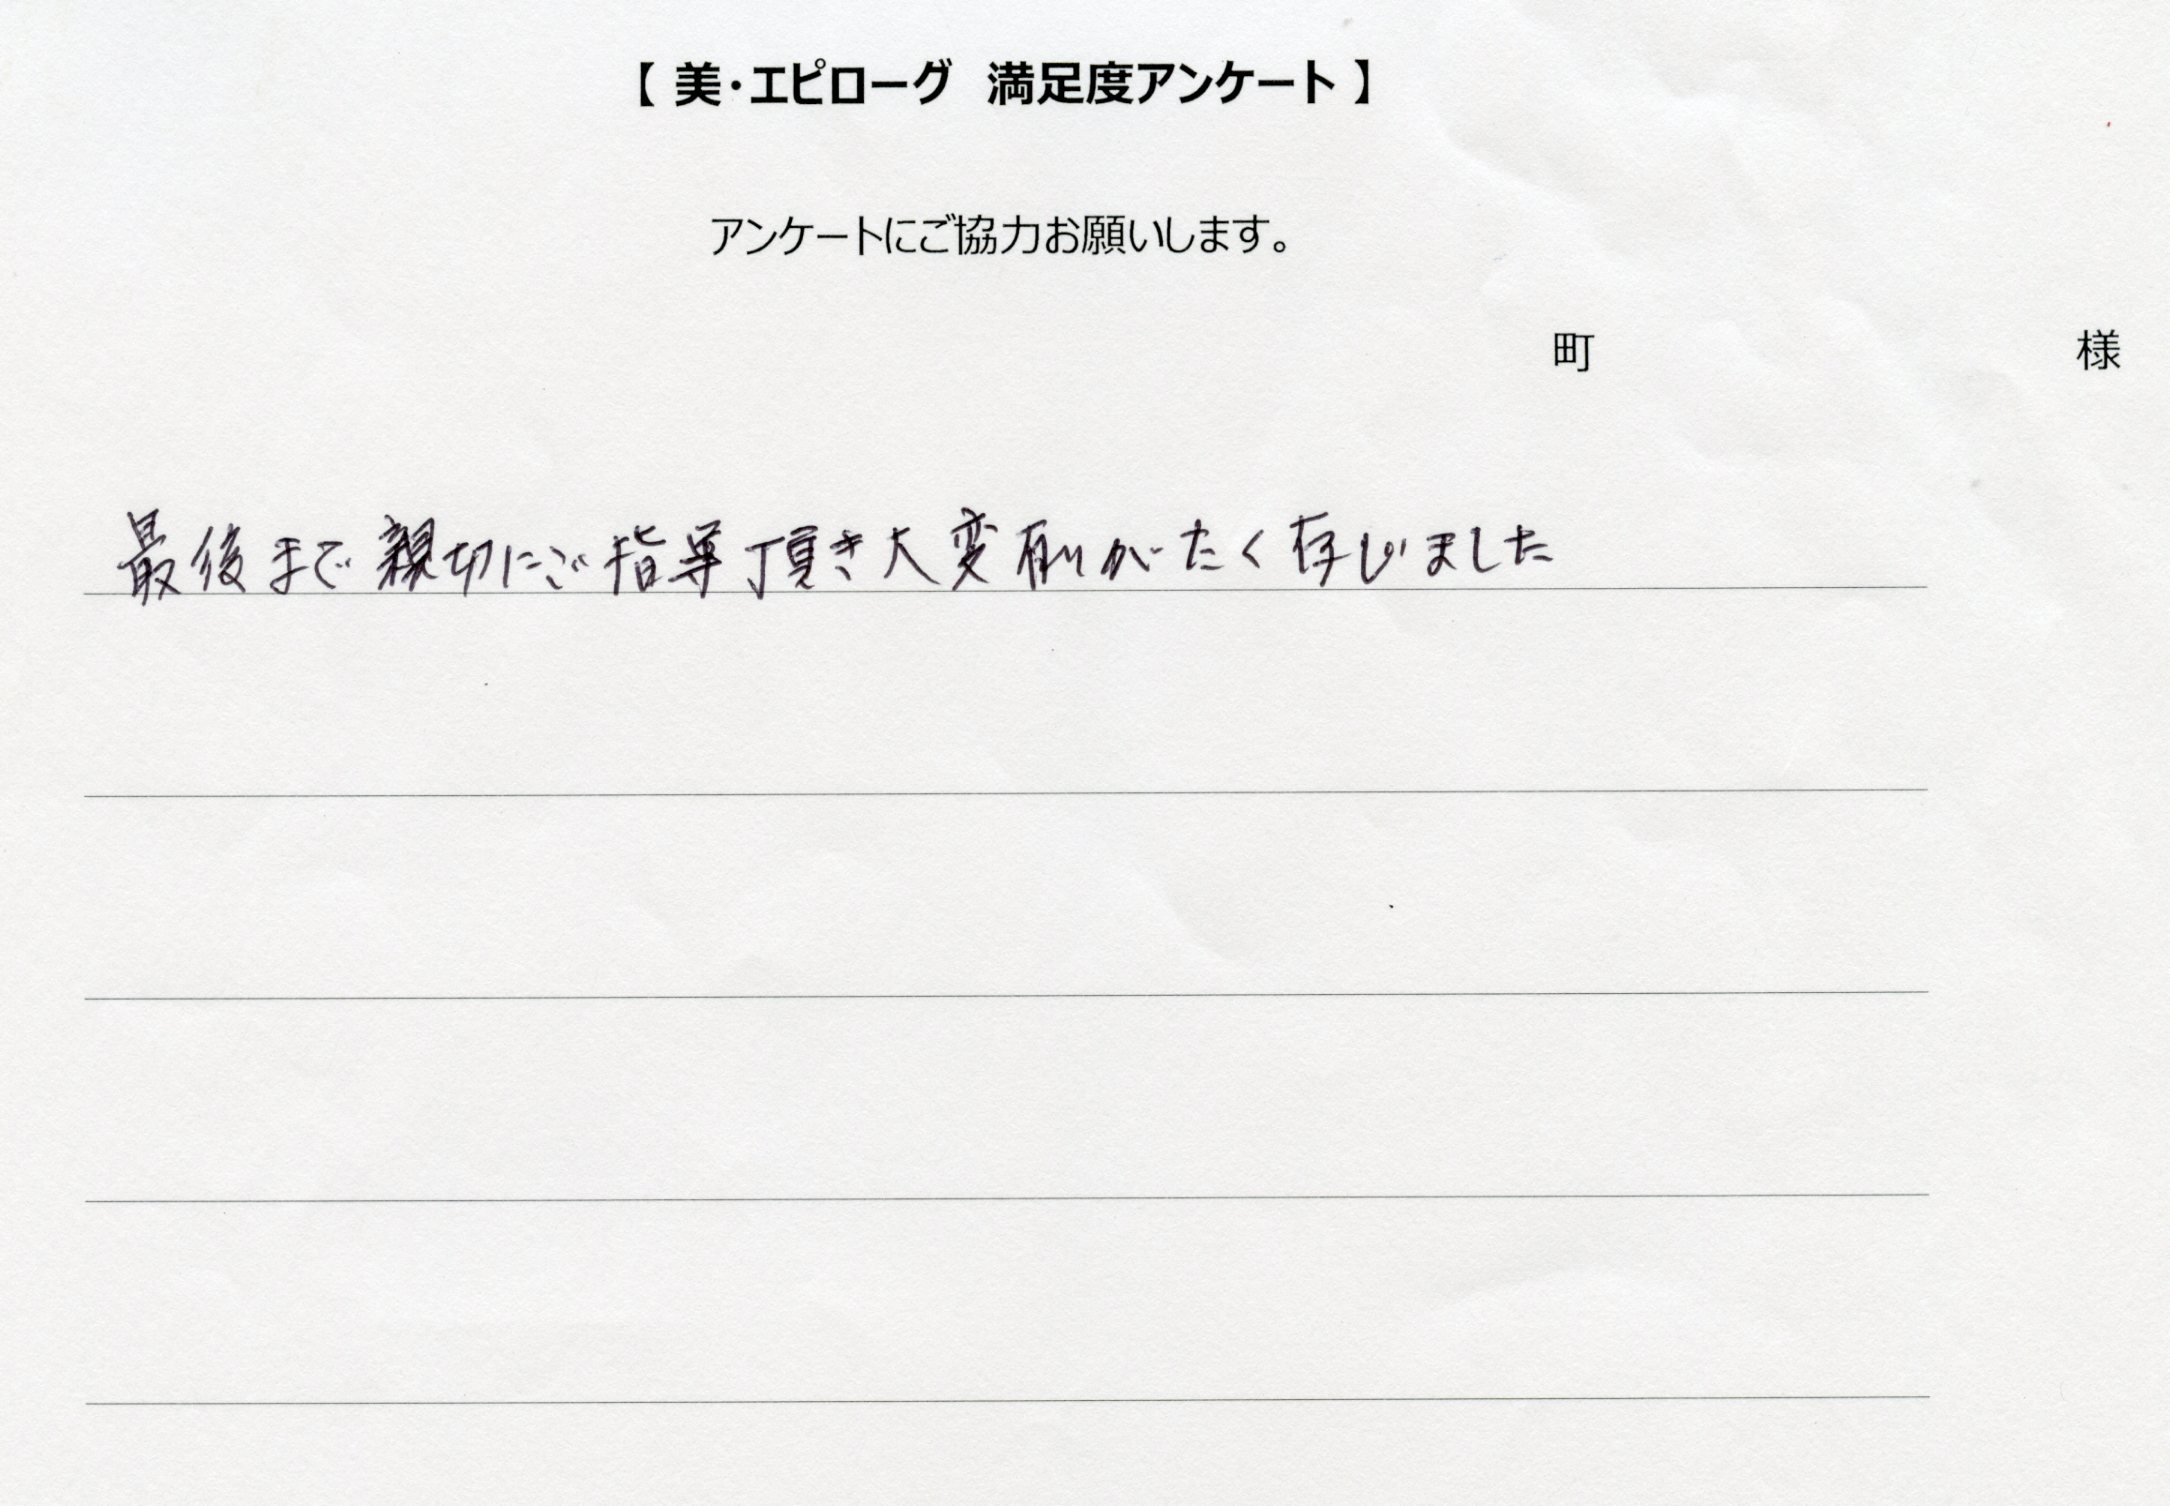 【 美・エピローグ 満足度アンケート 】
アンケートにご協力お願いします。
町 様
最後まで親切にご指導頂き大変有りがたく存じました